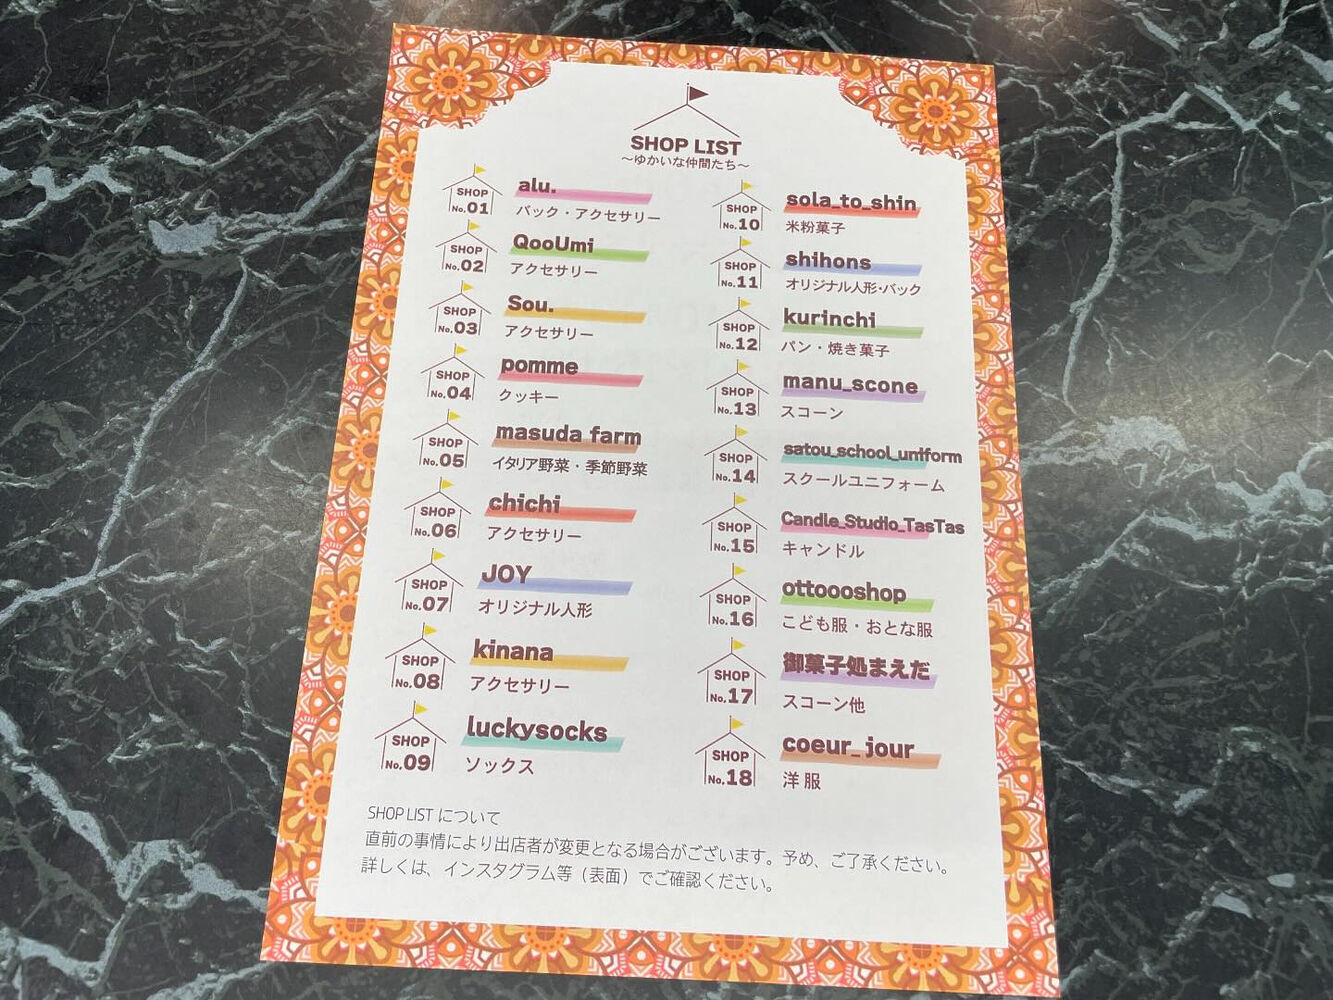 SHOP LIST
～ゆかいな仲間たち～
SHOP No.01
alu.
バック・アクセサリー
SHOP No.02
QooUmi
アクセサリー
SHOP No.03
Sou.
アクセサリー
SHOP No.04
pomme
クッキー
SHOP No.05
masuda farm
イタリア野菜・季節野菜
SHOP No.06
chichi
アクセサリー
SHOP No.07
JOY
オリジナル人形
SHOP No.08
kinana
アクセサリー
SHOP No.09
luckysocks
ソックス
SHOP No.10
sola_to_shin
米粉菓子
SHOP No.11
shihons
オリジナル人形・バック
SHOP No.12
kurinchi
パン・焼き菓子
SHOP No.13
manu_scone
スコーン
SHOP No.14
satou_school_uniform
スクールユニフォーム
SHOP No.15
Candle_Studio_TasTas
キャンドル
SHOP No.16
ottoooshop
こども服・おとな服
SHOP No.17
御菓子処まえだ
スコーン他
SHOP No.18
coeur_jour
洋服
SHOP LIST について
直前の事情により出店者が変更となる場合がございます。予め、ご了承ください。
詳しくは、インスタグラム等（表面）でご確認ください。